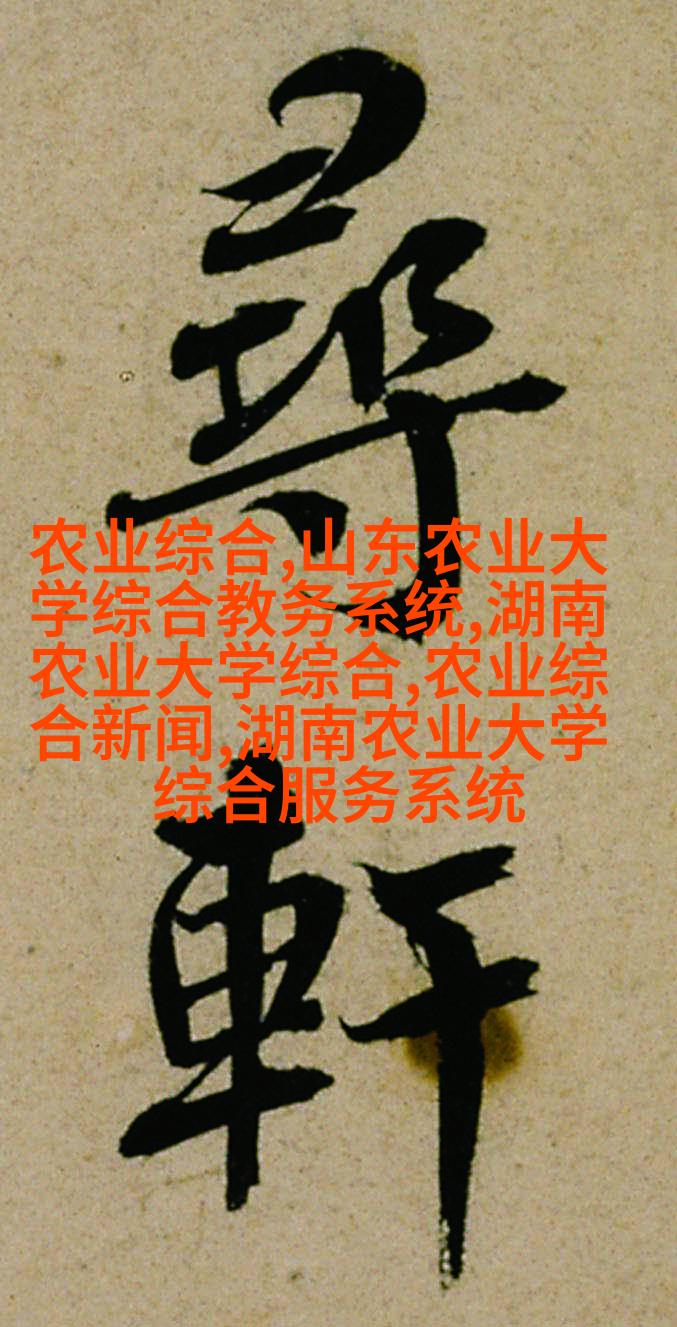 尋
軒
农业综合,山东农业大
学综合教务系统,湖南
农业大学综合,农业综
合新闻,湖南农业大学
综合服务系统